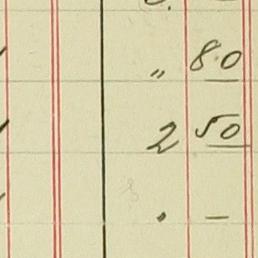 „ 80
2 50
. —